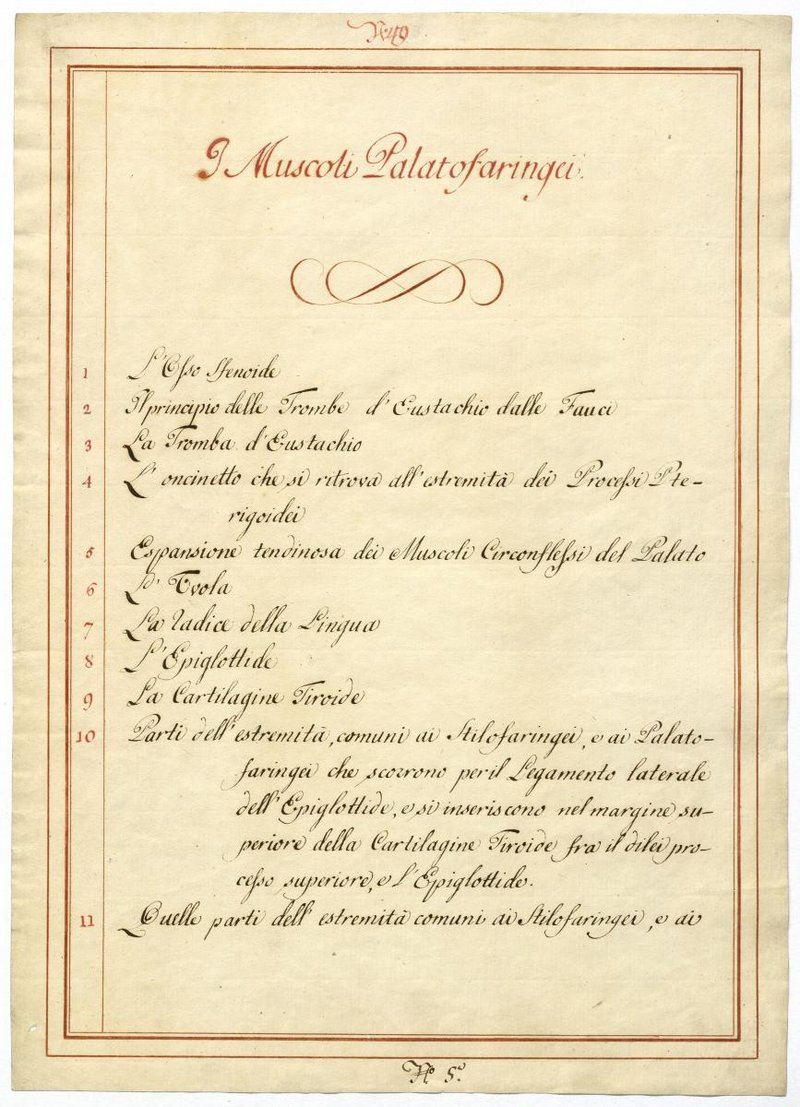 N 49
I Muscoli Palatofaringei.
1 L'Osso Sfenoide
2 Il principio delle Trombe d'Eustachio dalle Fauci
3 La Tromba d'Eustachio
4 L'oncinetto che si ritrova all'estremità dei Processi Pte-
rigoidei
5 Espansione tendinosa dei Muscoli Circonflessi del Palato
6 L'Uvola
7 La radice della Lingua
8 L'Epiglottide
9 La Cartilagine Tiroide
10 Parti dell'estremità, comuni ai Stilofaringei, e ai Palato-
faringei che scorrono per il Legamento laterale
dell'Epiglottide, e si inseriscono nel margine su-
periore della Cartilagine Tiroide fra il dilei pro-
cesso superiore, e l'Epiglottide.
11 Quelle parti dell'estremità comuni ai Stilofaringei, e ai
No 5.